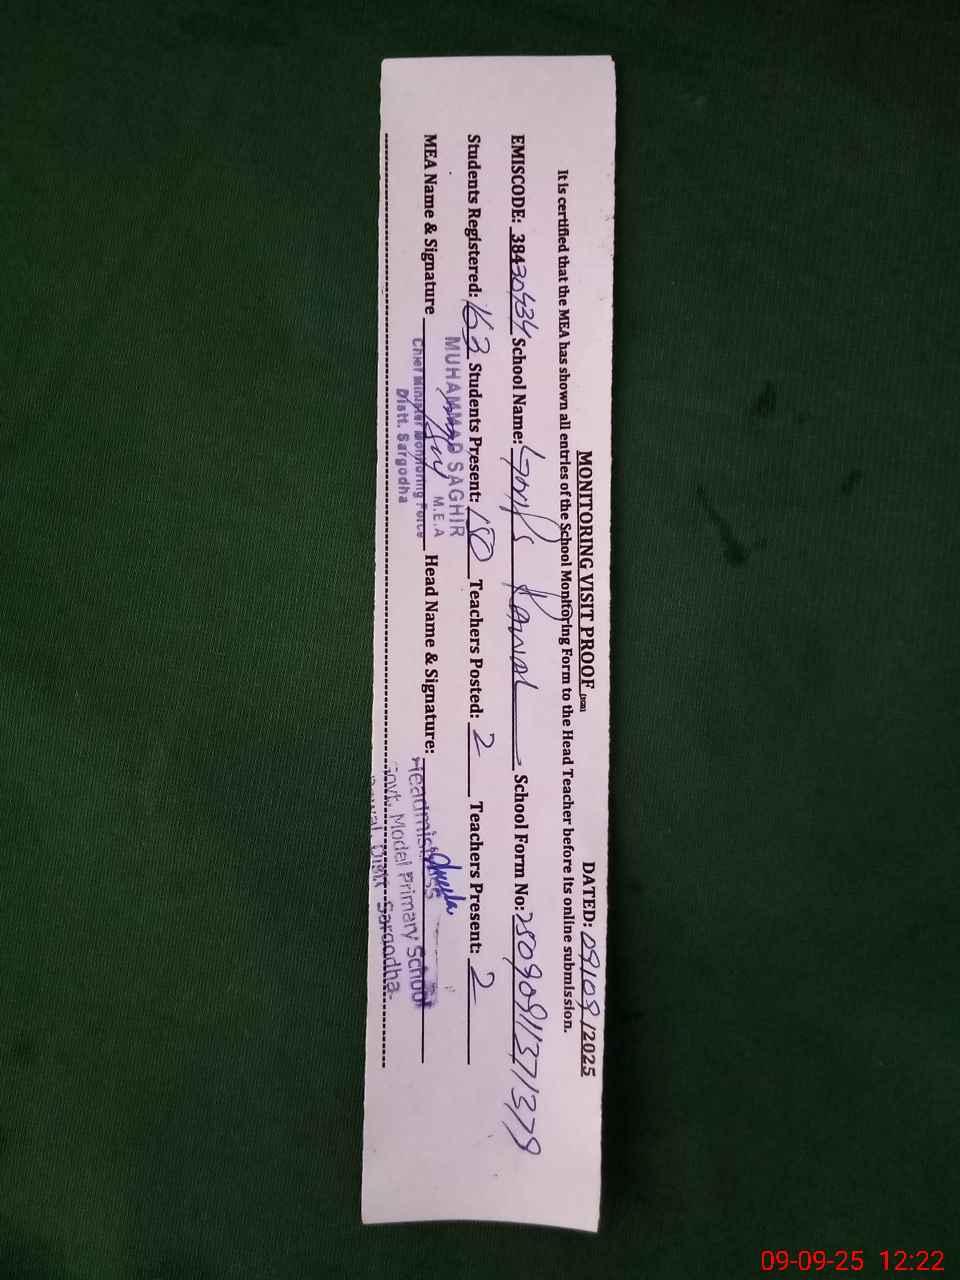 MONITORING VISIT PROOF DATED: 09/09/2025
It is certified that the MEA has shown all entries of the School Monitoring Form to the Head Teacher before its online submission.
EMISCODE: 38430434 School Name: Gmps Rawal School Form No: 25090911371379
Students Registered: 163 Students Present: 150 Teachers Posted: 2 Teachers Present: 2
MEA Name & Signature Head Name & Signature:
MUHAMMAD SAGHIR
M.E.A
Chief Minister Monitoring Force
Distt. Sargodha
Headmistress
Govt. Model Primary School
Rawal, Distt. Sargodha.
09-09-25 12:22